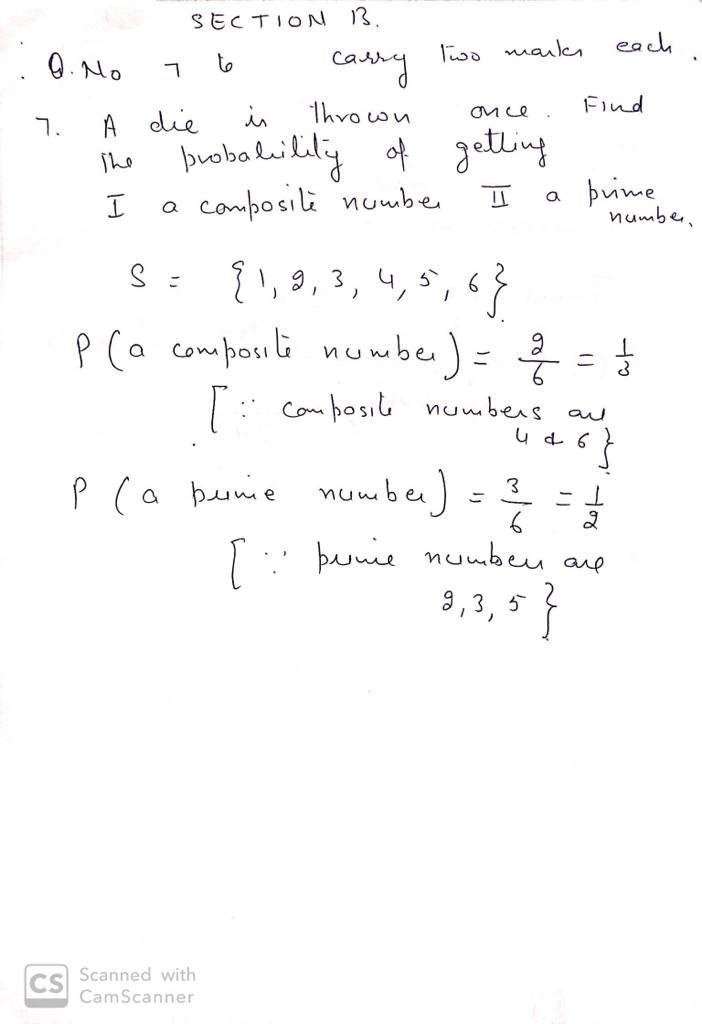 SECTION B.
Q. No 7 to carry Two marks each.
7. A die is Thrown once. Find
The probability of getting
I a composite number II a prime
number.
S = {1, 2, 3, 4, 5, 6}
P (a composite number) = 2/6 = 1/3
[∵ composite numbers are
4 & 6}
P (a prime number) = 3/6 = 1/2
[∵ prime numbers are
2, 3, 5}
CS Scanned with
CamScanner